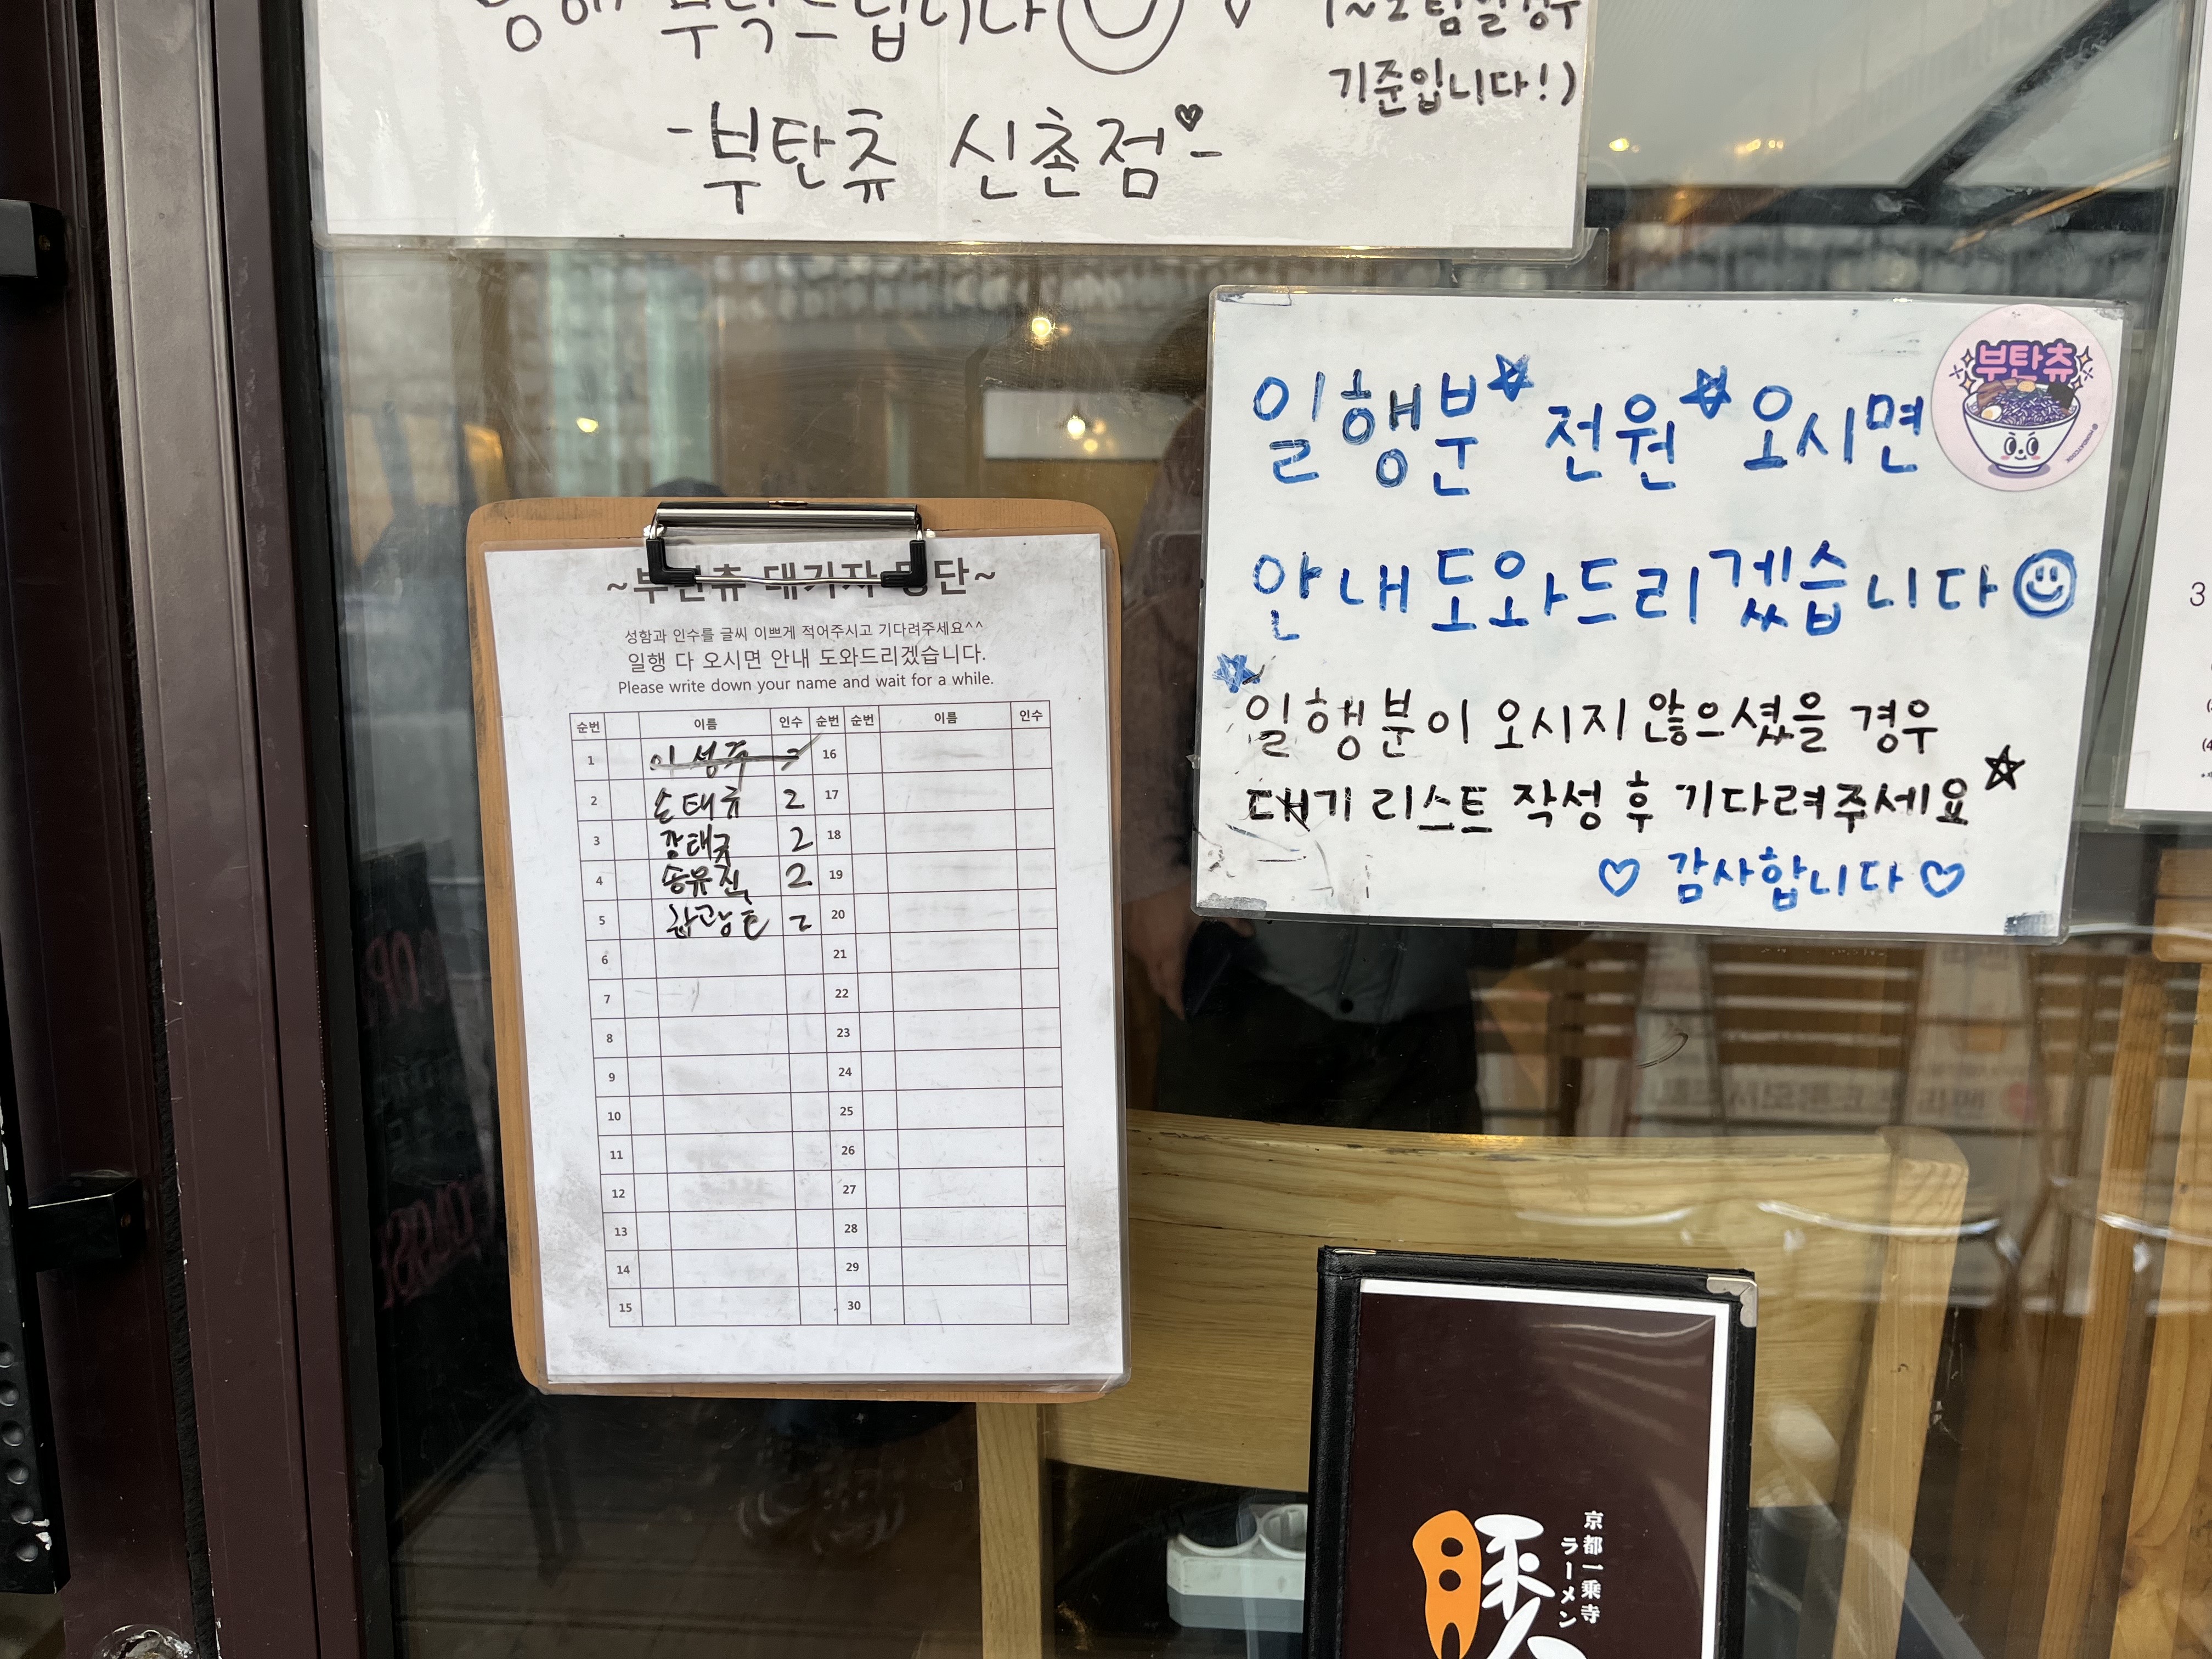 부탁드립니다
기준입니다!)
-부탄츄 신촌점-
부탄츄
일행분 전원 오시면
안내 도와드리겠습니다
일행분이 오시지 않으셨을 경우
대기 리스트 작성 후 기다려주세요
감사합니다
~부탄츄 대기자 명단~
성함과 인수를 글씨 이쁘게 적어주시고 기다려주세요^^
일행 다 오시면 안내 도와드리겠습니다.
Please write down your name and wait for a while.
순번 이름 인수 순번 순번 이름 인수
1 이성주 16
2 손태규 2 17
3 장태국 2 18
4 송유진 2 19
5 2 20
6 21
7 22
8 23
9 24
10 25
11 26
12 27
13 28
14 29
15 30
3
京都一乗寺
ラーメン